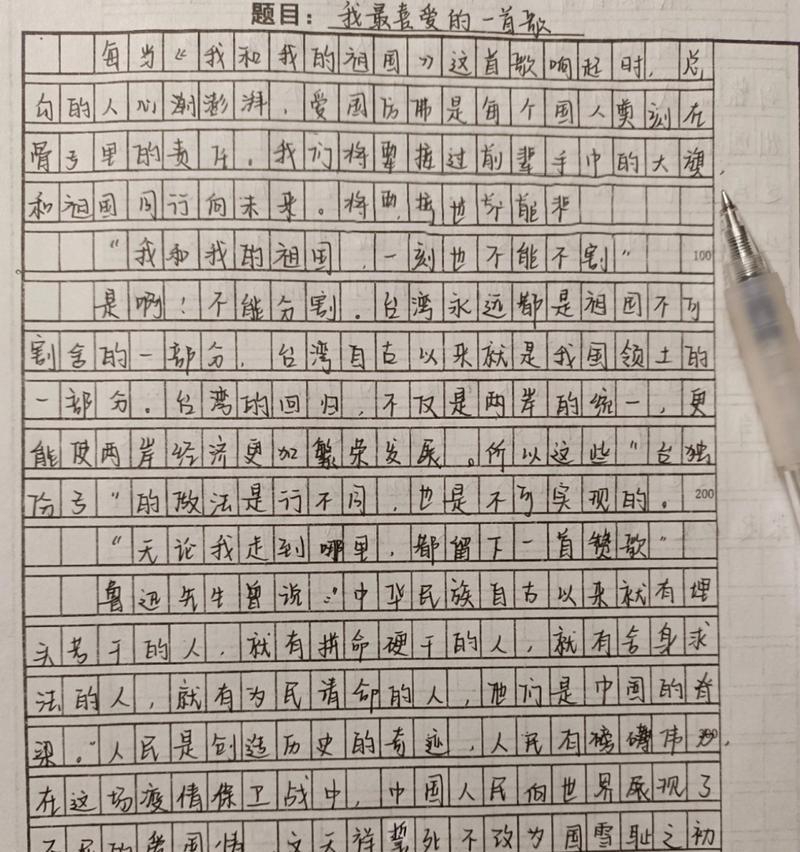 题目：我最喜爱的一首歌
每当《我和我的祖国》这首歌响起时，总
勾的人心潮澎湃，爱国仿佛是每个国人奠刻在
骨子里的责任。我们将要接过前辈手中的大旗，
和祖国同行向未来。将要接也
“我和我的祖国，一刻也不能不割” 100
是啊！不能分割。台湾永远都是祖国不可
割舍的一部分，台湾自古以来就是我国领土的
一部分。台湾的回归，不仅是两岸的统一，更
能使两岸经济更加繁荣发展。所以这些“台独
份子”的做法是行不同，也是不可实现的。 200
“无论我走到哪里，都留下一首赞歌”
鲁迅先生曾说：“中华民族自古以来就有埋
头苦干的人，就有拼命硬干的人，就有舍身求
法的人，就有为民请命的人，他们是中国的脊
梁。”人民是创造历史的奇迹，人民有磅礴伟
在这场疫情保卫战中，中国人民向世界展现了
的爱国情，文天祥誓死不改为国雪耻之初